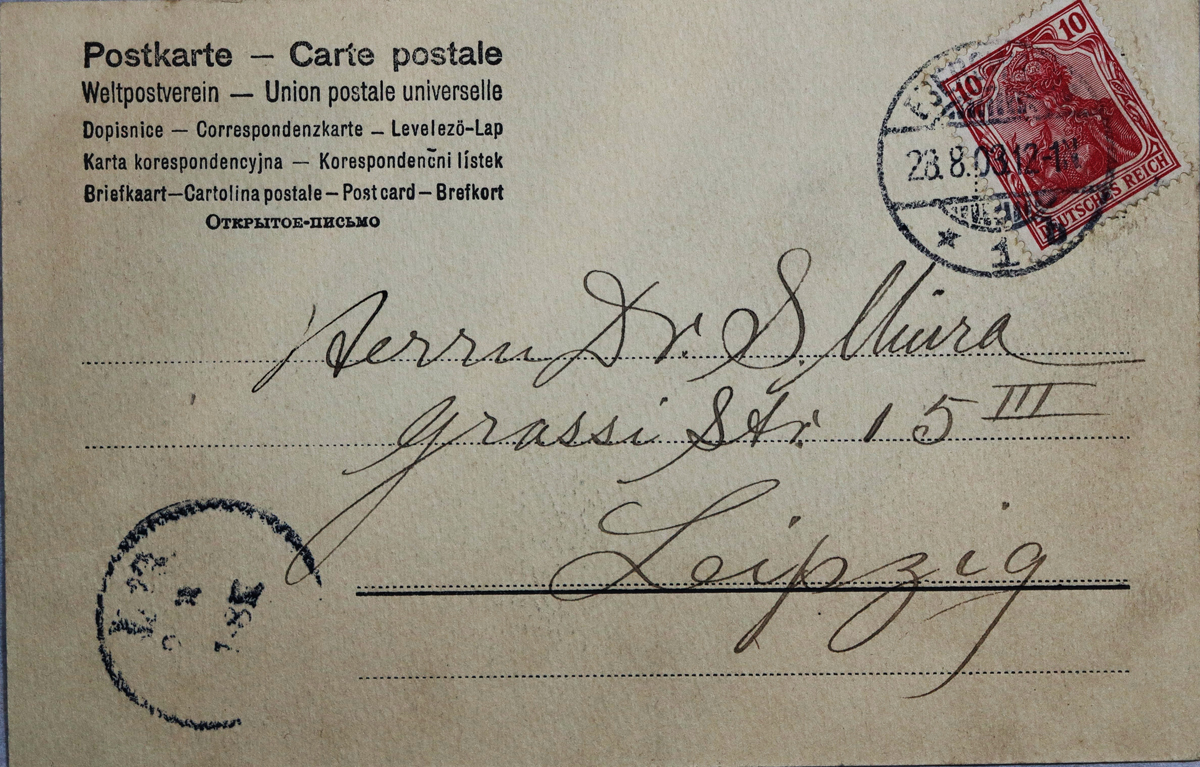 Postkarte — Carte postale
Weltpostverein — Union postale universelle
Dopisnice — Correspondenzkarte — Levelező-Lap
Karta korespondencyjna — Korespondenčni lístek
Briefkaart — Cartolina postale — Post card — Brefkort
Открытое-письмо
10 10
DEUTSCHES REICH
28.8.03.12-1N
* 1 b
Herrn Dr. S. Miura
Grassi Str. 15 III
Leipzig